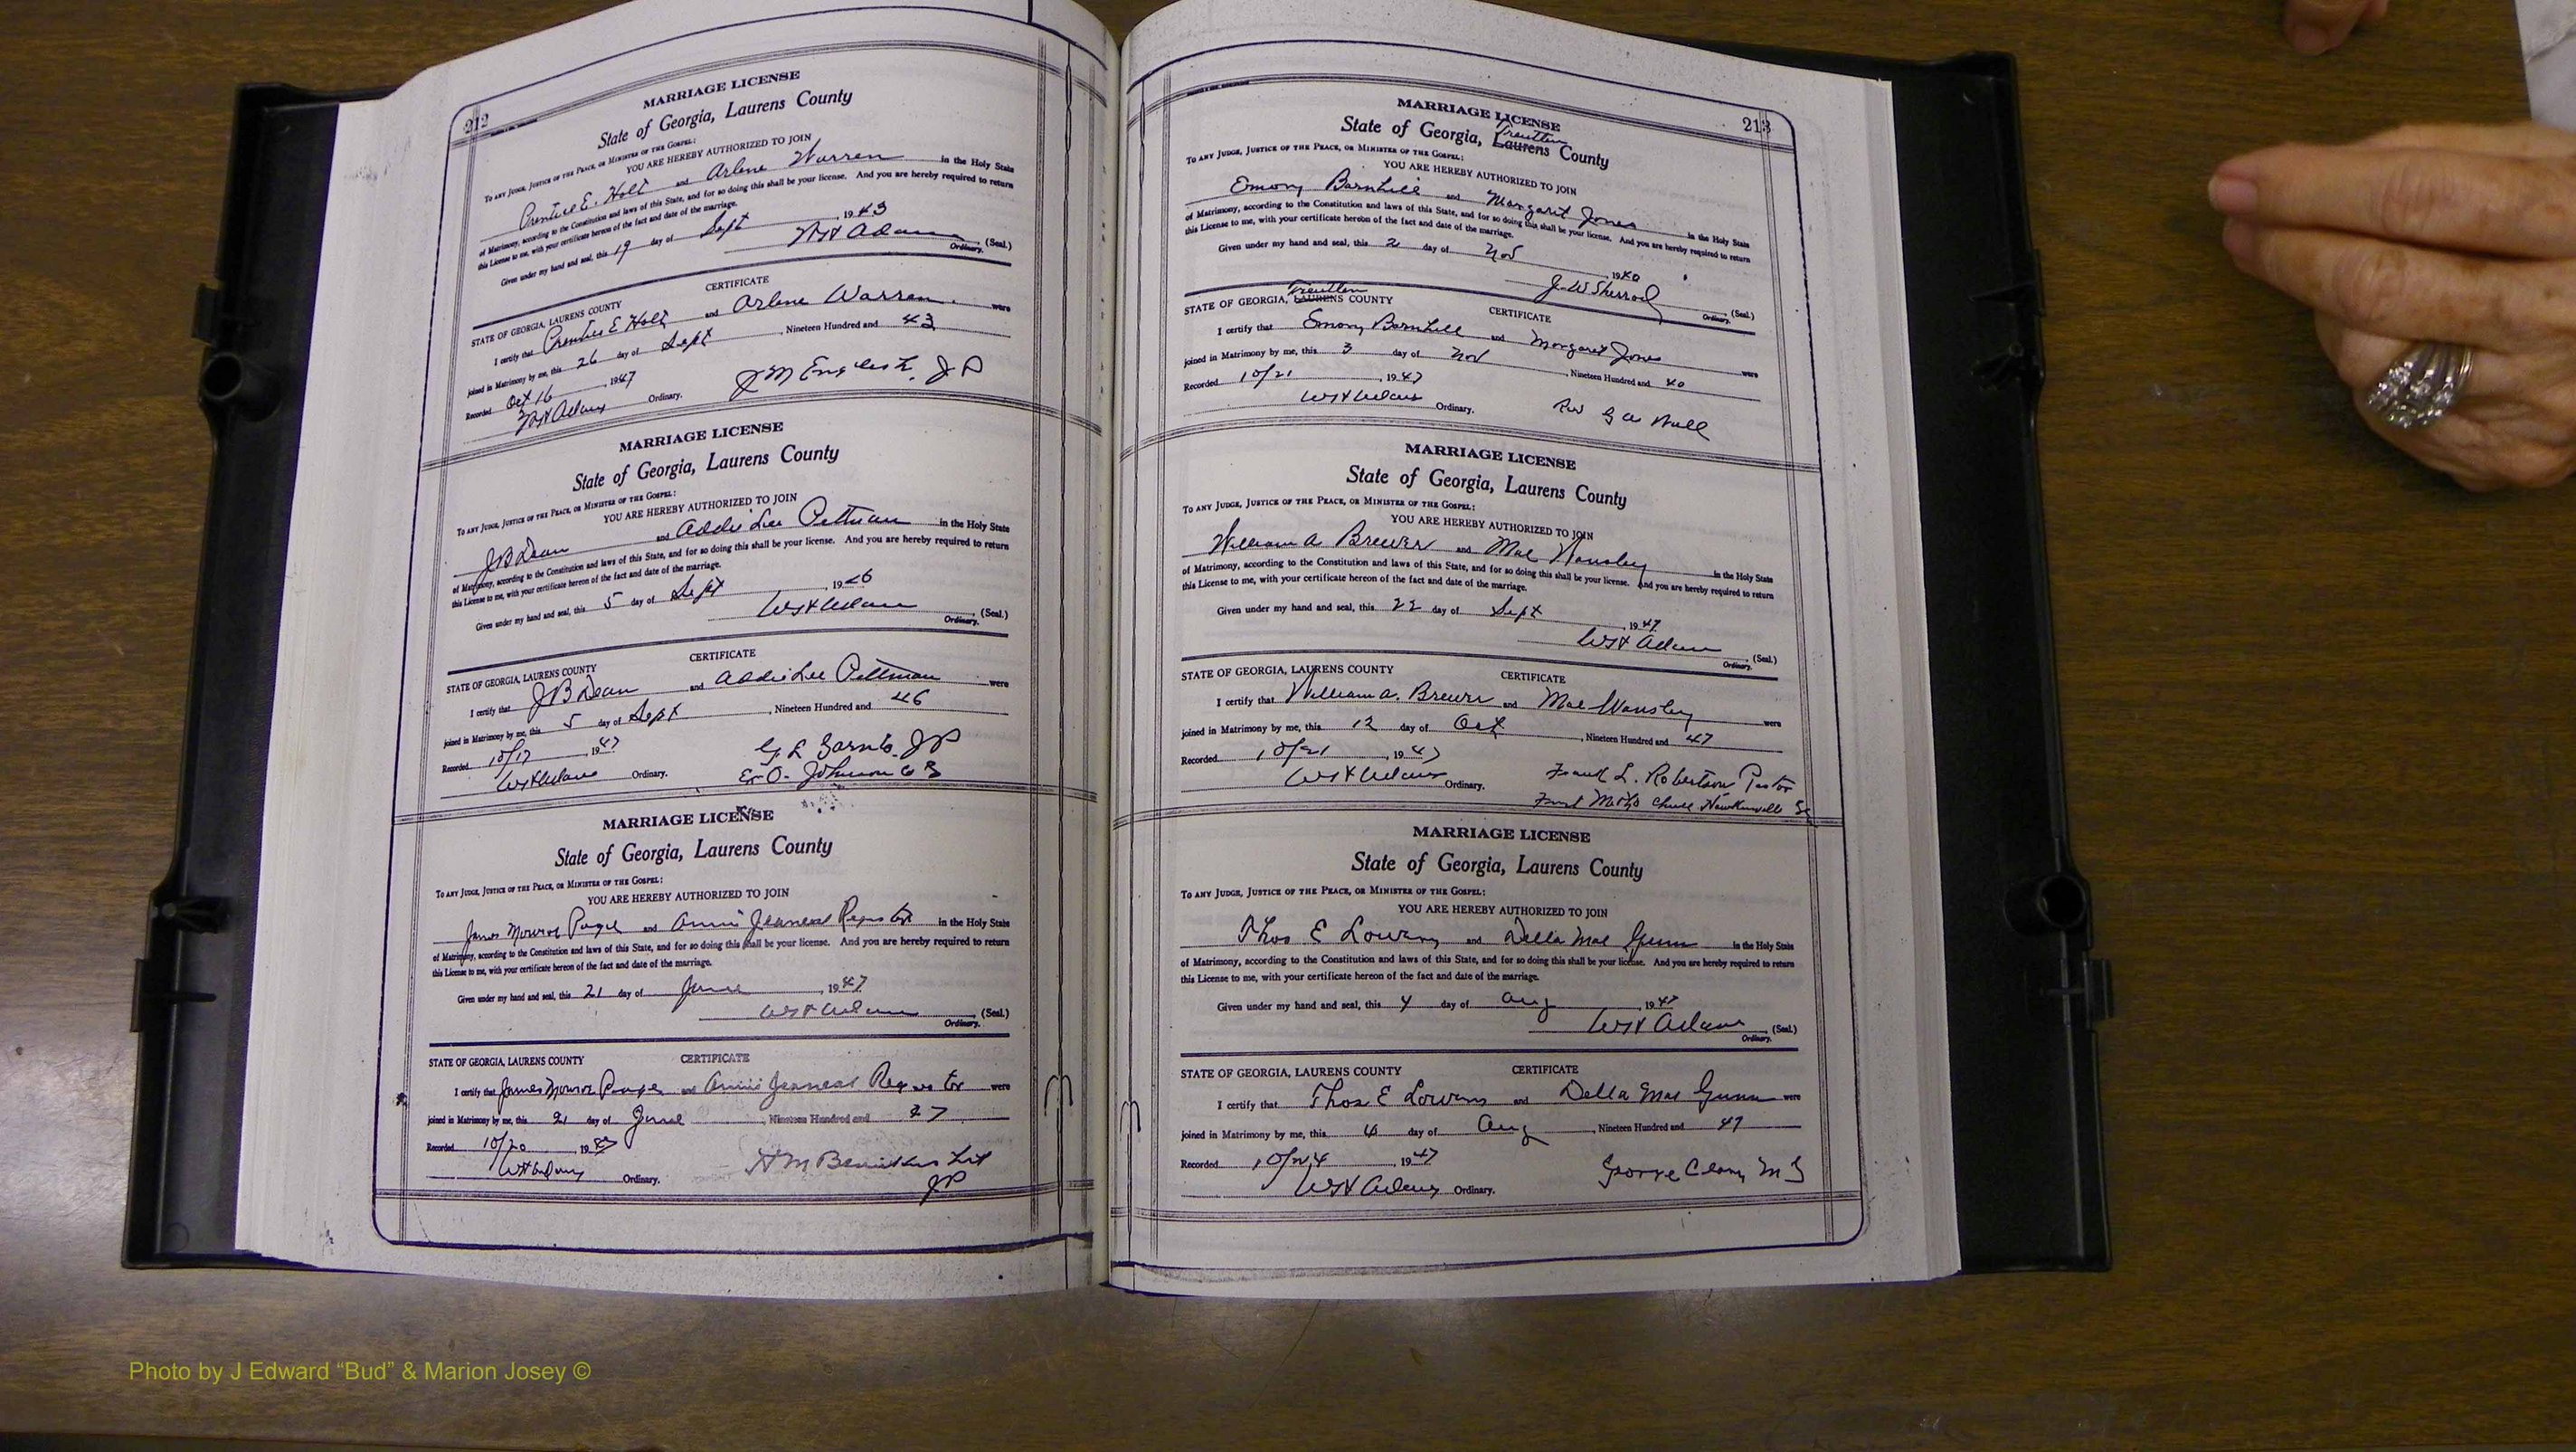 212
MARRIAGE LICENSE
State of Georgia, Laurens County
TO ANY JUDGE, JUSTICE OF THE PEACE, OR MINISTER OF THE GOSPEL:
YOU ARE HEREBY AUTHORIZED TO JOIN
Prentice E. Holt and Arlene Warren in the Holy State
of Matrimony, according to the Constitution and laws of this State, and for so doing this shall be your license. And you are hereby required to return
this License to me, with your certificate hereon of the fact and date of the marriage.
Given under my hand and seal, this 19 day of Sept , 1943
WH Adams (Seal.)
Ordinary.
CERTIFICATE
STATE OF GEORGIA, LAURENS COUNTY
I certify that Prentice E Holt and Arlene Warren were
joined in Matrimony by me, this 26 day of Sept , Nineteen Hundred and 43
Recorded Oct 16 , 1947
WH Adams Ordinary. J P
MARRIAGE LICENSE
State of Georgia, Laurens County
TO ANY JUDGE, JUSTICE OF THE PEACE, OR MINISTER OF THE GOSPEL:
YOU ARE HEREBY AUTHORIZED TO JOIN
J B Dean and Addie Lee Pittman in the Holy State
of Matrimony, according to the Constitution and laws of this State, and for so doing this shall be your license. And you are hereby required to return
this License to me, with your certificate hereon of the fact and date of the marriage.
Given under my hand and seal, this 5 day of Sept , 1946
WH Adams (Seal.)
Ordinary.
CERTIFICATE
STATE OF GEORGIA, LAURENS COUNTY
I certify that J B Dean and Addie Lee Pittman were
joined in Matrimony by me, this 5 day of Sept , Nineteen Hundred and 46
Recorded 10/17 , 1947 JP
WH Adams Ordinary. Johnson
MARRIAGE LICENSE
State of Georgia, Laurens County
TO ANY JUDGE, JUSTICE OF THE PEACE, OR MINISTER OF THE GOSPEL:
YOU ARE HEREBY AUTHORIZED TO JOIN
James Monroe and Annie Register in the Holy State
of Matrimony, according to the Constitution and laws of this State, and for so doing this shall be your license. And you are hereby required to return
this License to me, with your certificate hereon of the fact and date of the marriage.
Given under my hand and seal, this 21 day of June , 1947
WH Adams (Seal.)
Ordinary.
STATE OF GEORGIA, LAURENS COUNTY CERTIFICATE
I certify that James Monroe and Annie Register were
joined in Matrimony by me, this 21 day of June , Nineteen Hundred and 47
Recorded 10/20 , 1947
WH Adams Ordinary. H M
JP
213
MARRIAGE LICENSE
Treutlen
State of Georgia, Laurens County
TO ANY JUDGE, JUSTICE OF THE PEACE, OR MINISTER OF THE GOSPEL:
YOU ARE HEREBY AUTHORIZED TO JOIN
Emory Barnhill and Margaret Jones in the Holy State
of Matrimony, according to the Constitution and laws of this State, and for so doing this shall be your license. And you are hereby required to return
this License to me, with your certificate hereon of the fact and date of the marriage.
Given under my hand and seal, this 2 day of Nov , 1940
J. W Sherrod (Seal.)
Ordinary.
Treutlen
STATE OF GEORGIA, LAURENS COUNTY CERTIFICATE
I certify that Emory Barnhill and Margaret Jones were
joined in Matrimony by me, this 3 day of Nov , Nineteen Hundred and 40
Recorded 10/21 , 1947
WH Adams Ordinary. Rev G
MARRIAGE LICENSE
State of Georgia, Laurens County
TO ANY JUDGE, JUSTICE OF THE PEACE, OR MINISTER OF THE GOSPEL:
YOU ARE HEREBY AUTHORIZED TO JOIN
William A Brewer and Mae Wansley in the Holy State
of Matrimony, according to the Constitution and laws of this State, and for so doing this shall be your license. And you are hereby required to return
this License to me, with your certificate hereon of the fact and date of the marriage.
Given under my hand and seal, this 22 day of Sept , 1947
WH Adams (Seal.)
Ordinary.
STATE OF GEORGIA, LAURENS COUNTY CERTIFICATE
I certify that William A. Brewer and Mae Wansley were
joined in Matrimony by me, this 12 day of Oct , Nineteen Hundred and 47
Recorded 10/21 , 1947
WH Adams Ordinary. Frank L. Robertson Pastor
First Metho Church Hawkinsville Ga
MARRIAGE LICENSE
State of Georgia, Laurens County
TO ANY JUDGE, JUSTICE OF THE PEACE, OR MINISTER OF THE GOSPEL:
YOU ARE HEREBY AUTHORIZED TO JOIN
Thos E Lowery and Della Mae Gunn in the Holy State
of Matrimony, according to the Constitution and laws of this State, and for so doing this shall be your license. And you are hereby required to return
this License to me, with your certificate hereon of the fact and date of the marriage.
Given under my hand and seal, this 4 day of Aug , 1947
WH Adams (Seal.)
Ordinary.
STATE OF GEORGIA, LAURENS COUNTY CERTIFICATE
I certify that Thos E Lowery and Della Mae Gunn were
joined in Matrimony by me, this day of Aug , Nineteen Hundred and 47
Recorded 10/24 , 1947
WH Adams Ordinary. George M G
Photo by J Edward “Bud” & Marion Josey ©